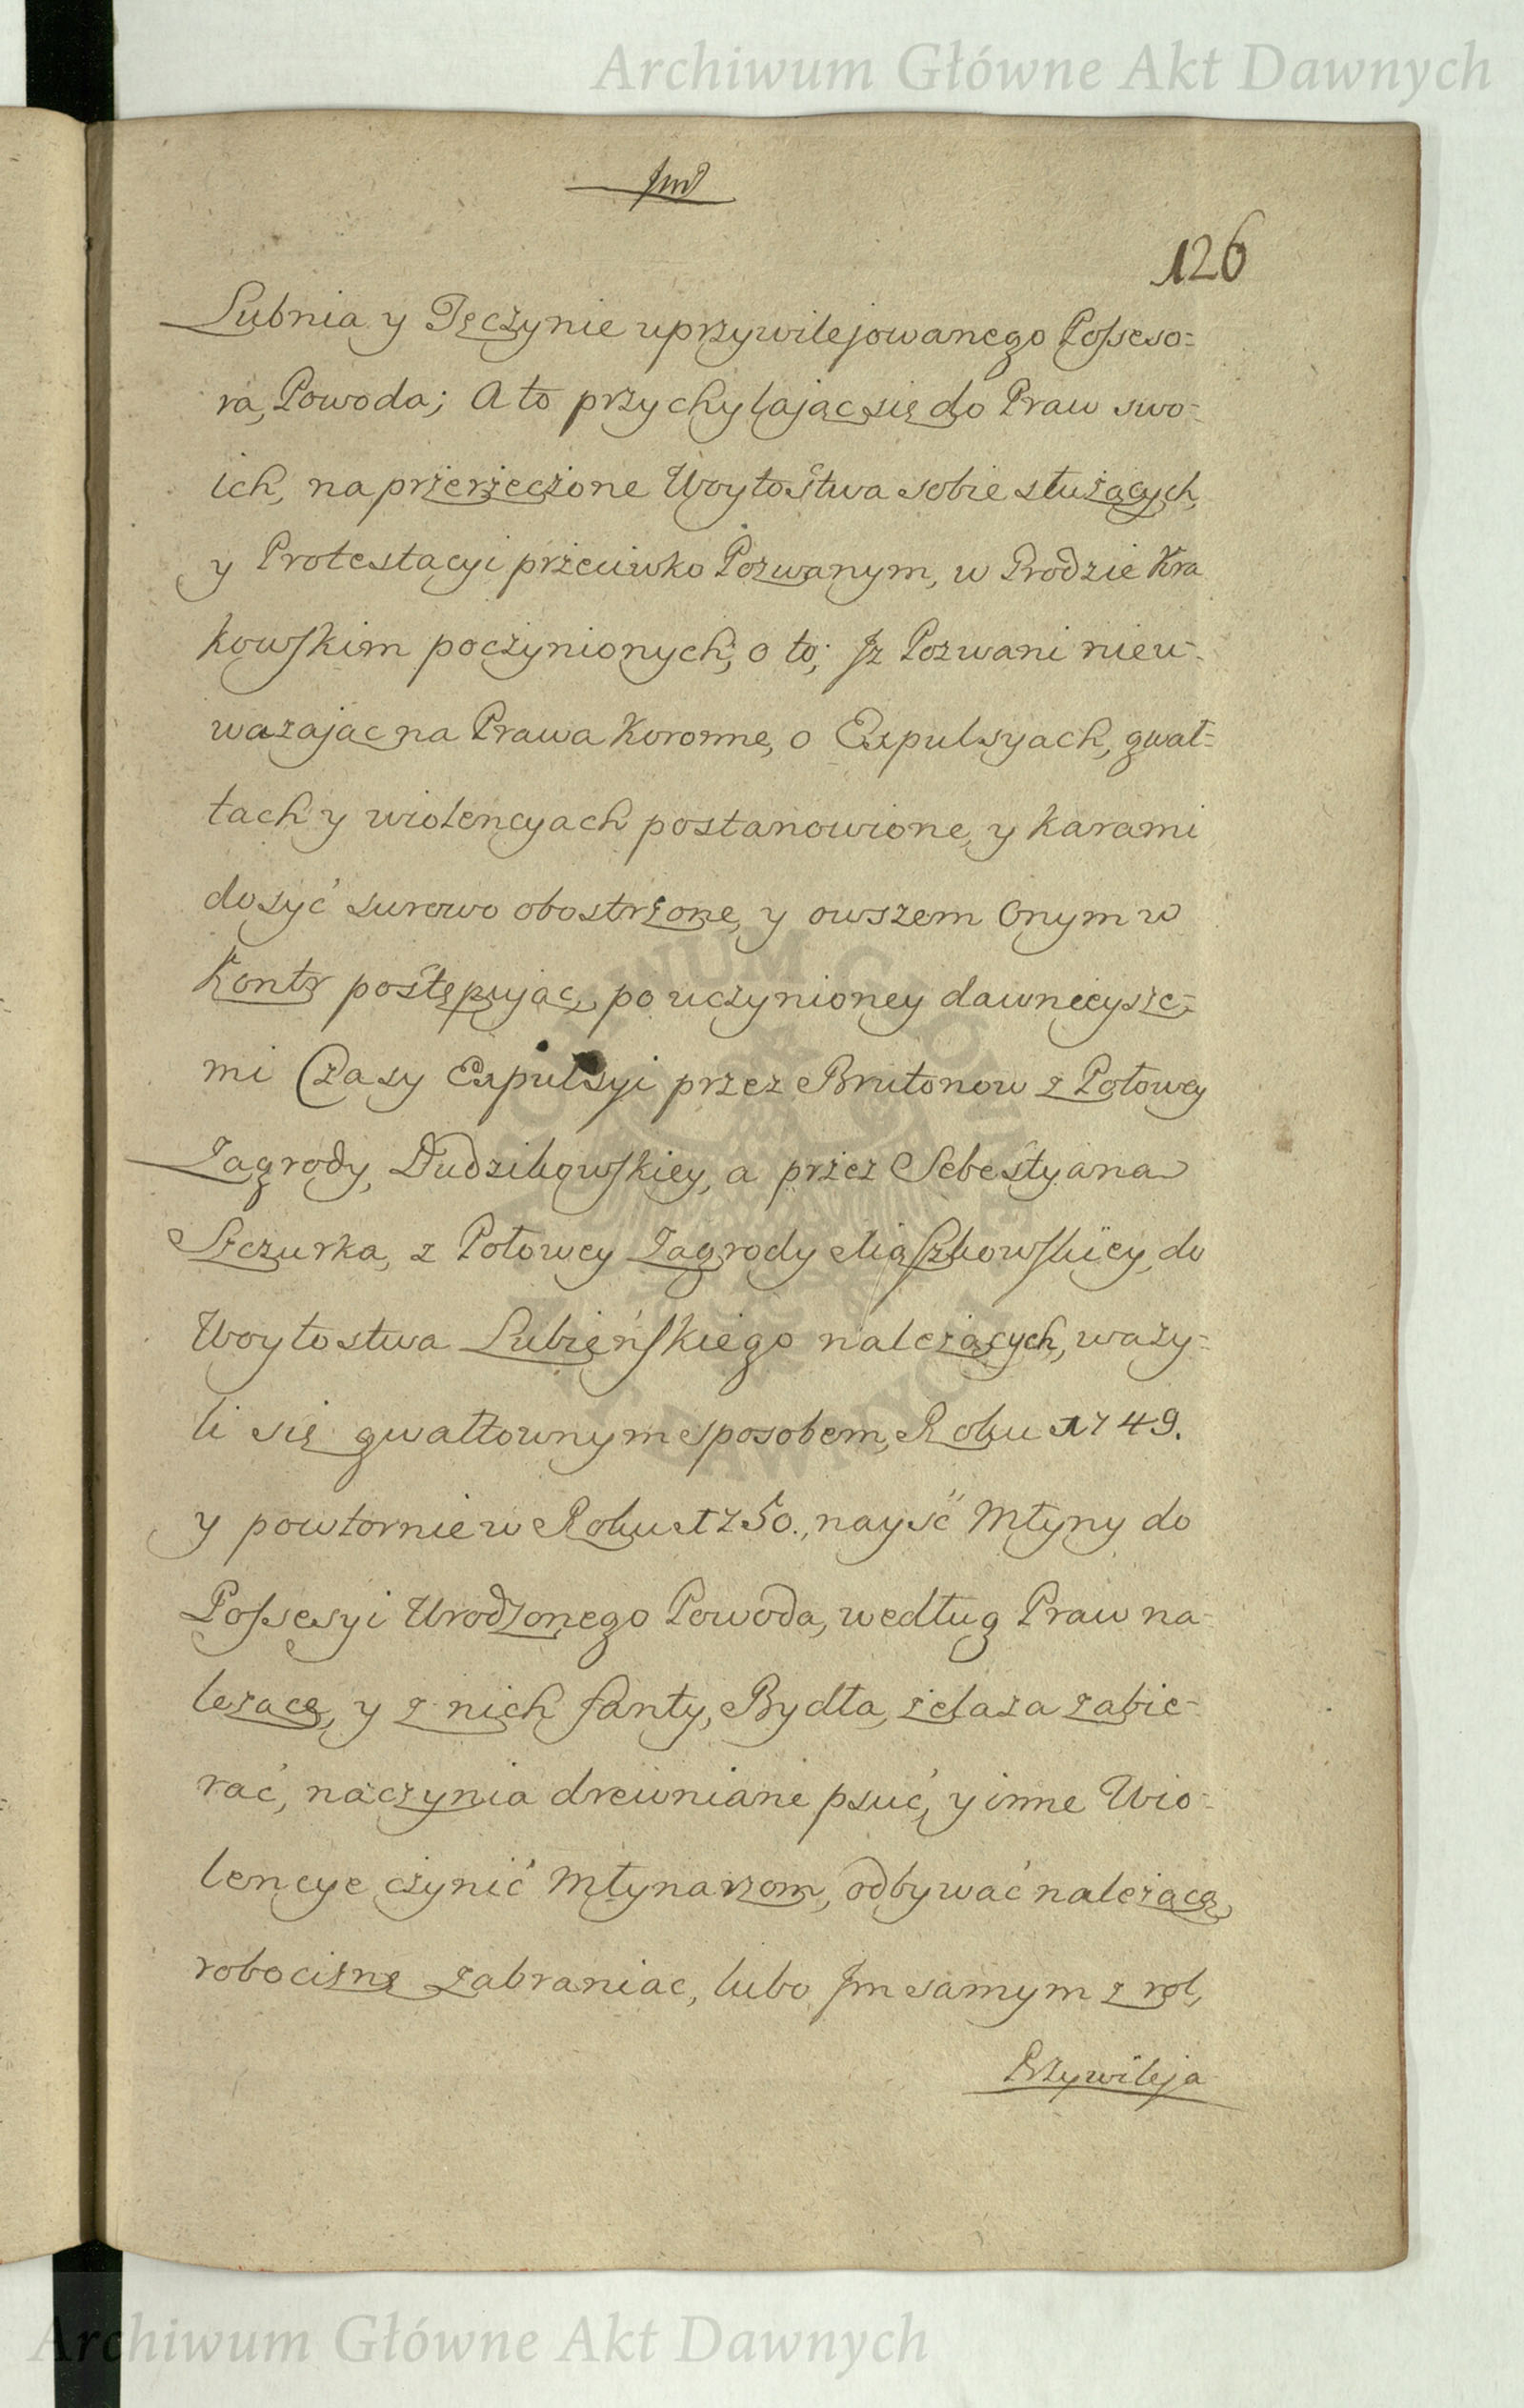 Archiwum Główne Akt Dawnych
126
Lubnia y Tęczynie uprzywilejowanego Possesso=
ra, Powoda; A to przychylając się do Praw swo=
ich, na przerzeczone Woytostwa sobie służących,
y Protestacyi przeciwko Pozwanym, w Grodzie Kra
kowskim poczynionych; o to; Jż Pozwani nieu=
ważając na Prawa Koronne, o Expulsyach, gwał=
tach y wiolencyach postanowione, y karami
dosyć surowo obostrzone, y owszem Onym w
Kontr postępując, po uczynioney dawnieysze=
mi Czasy Expulsyi przez Brutonow z Połowey
Zagrody, Dudzikowskiey, a przez Sebestyana
Szczurka, z Połowey Zagrody Miąszkowskiey, do
Woytostwa Lubieńskiego należących, waży=
li się gwałtownym sposobem, Roku 1749.
y powtornie w Roku 1750., nayść Młyny do
Possesyi Urodzonego Powoda, według Praw na=
leżące, y z nich fanty, Bydła, żelaza zabie=
rać, naczynia drewniane psuć, y inne Wio=
lencye czynić Młynarzom, odbywać należącą
robociznę zabraniac, lubo Jm samym z rol,
Przywileja
Archiwum Główne Akt Dawnych